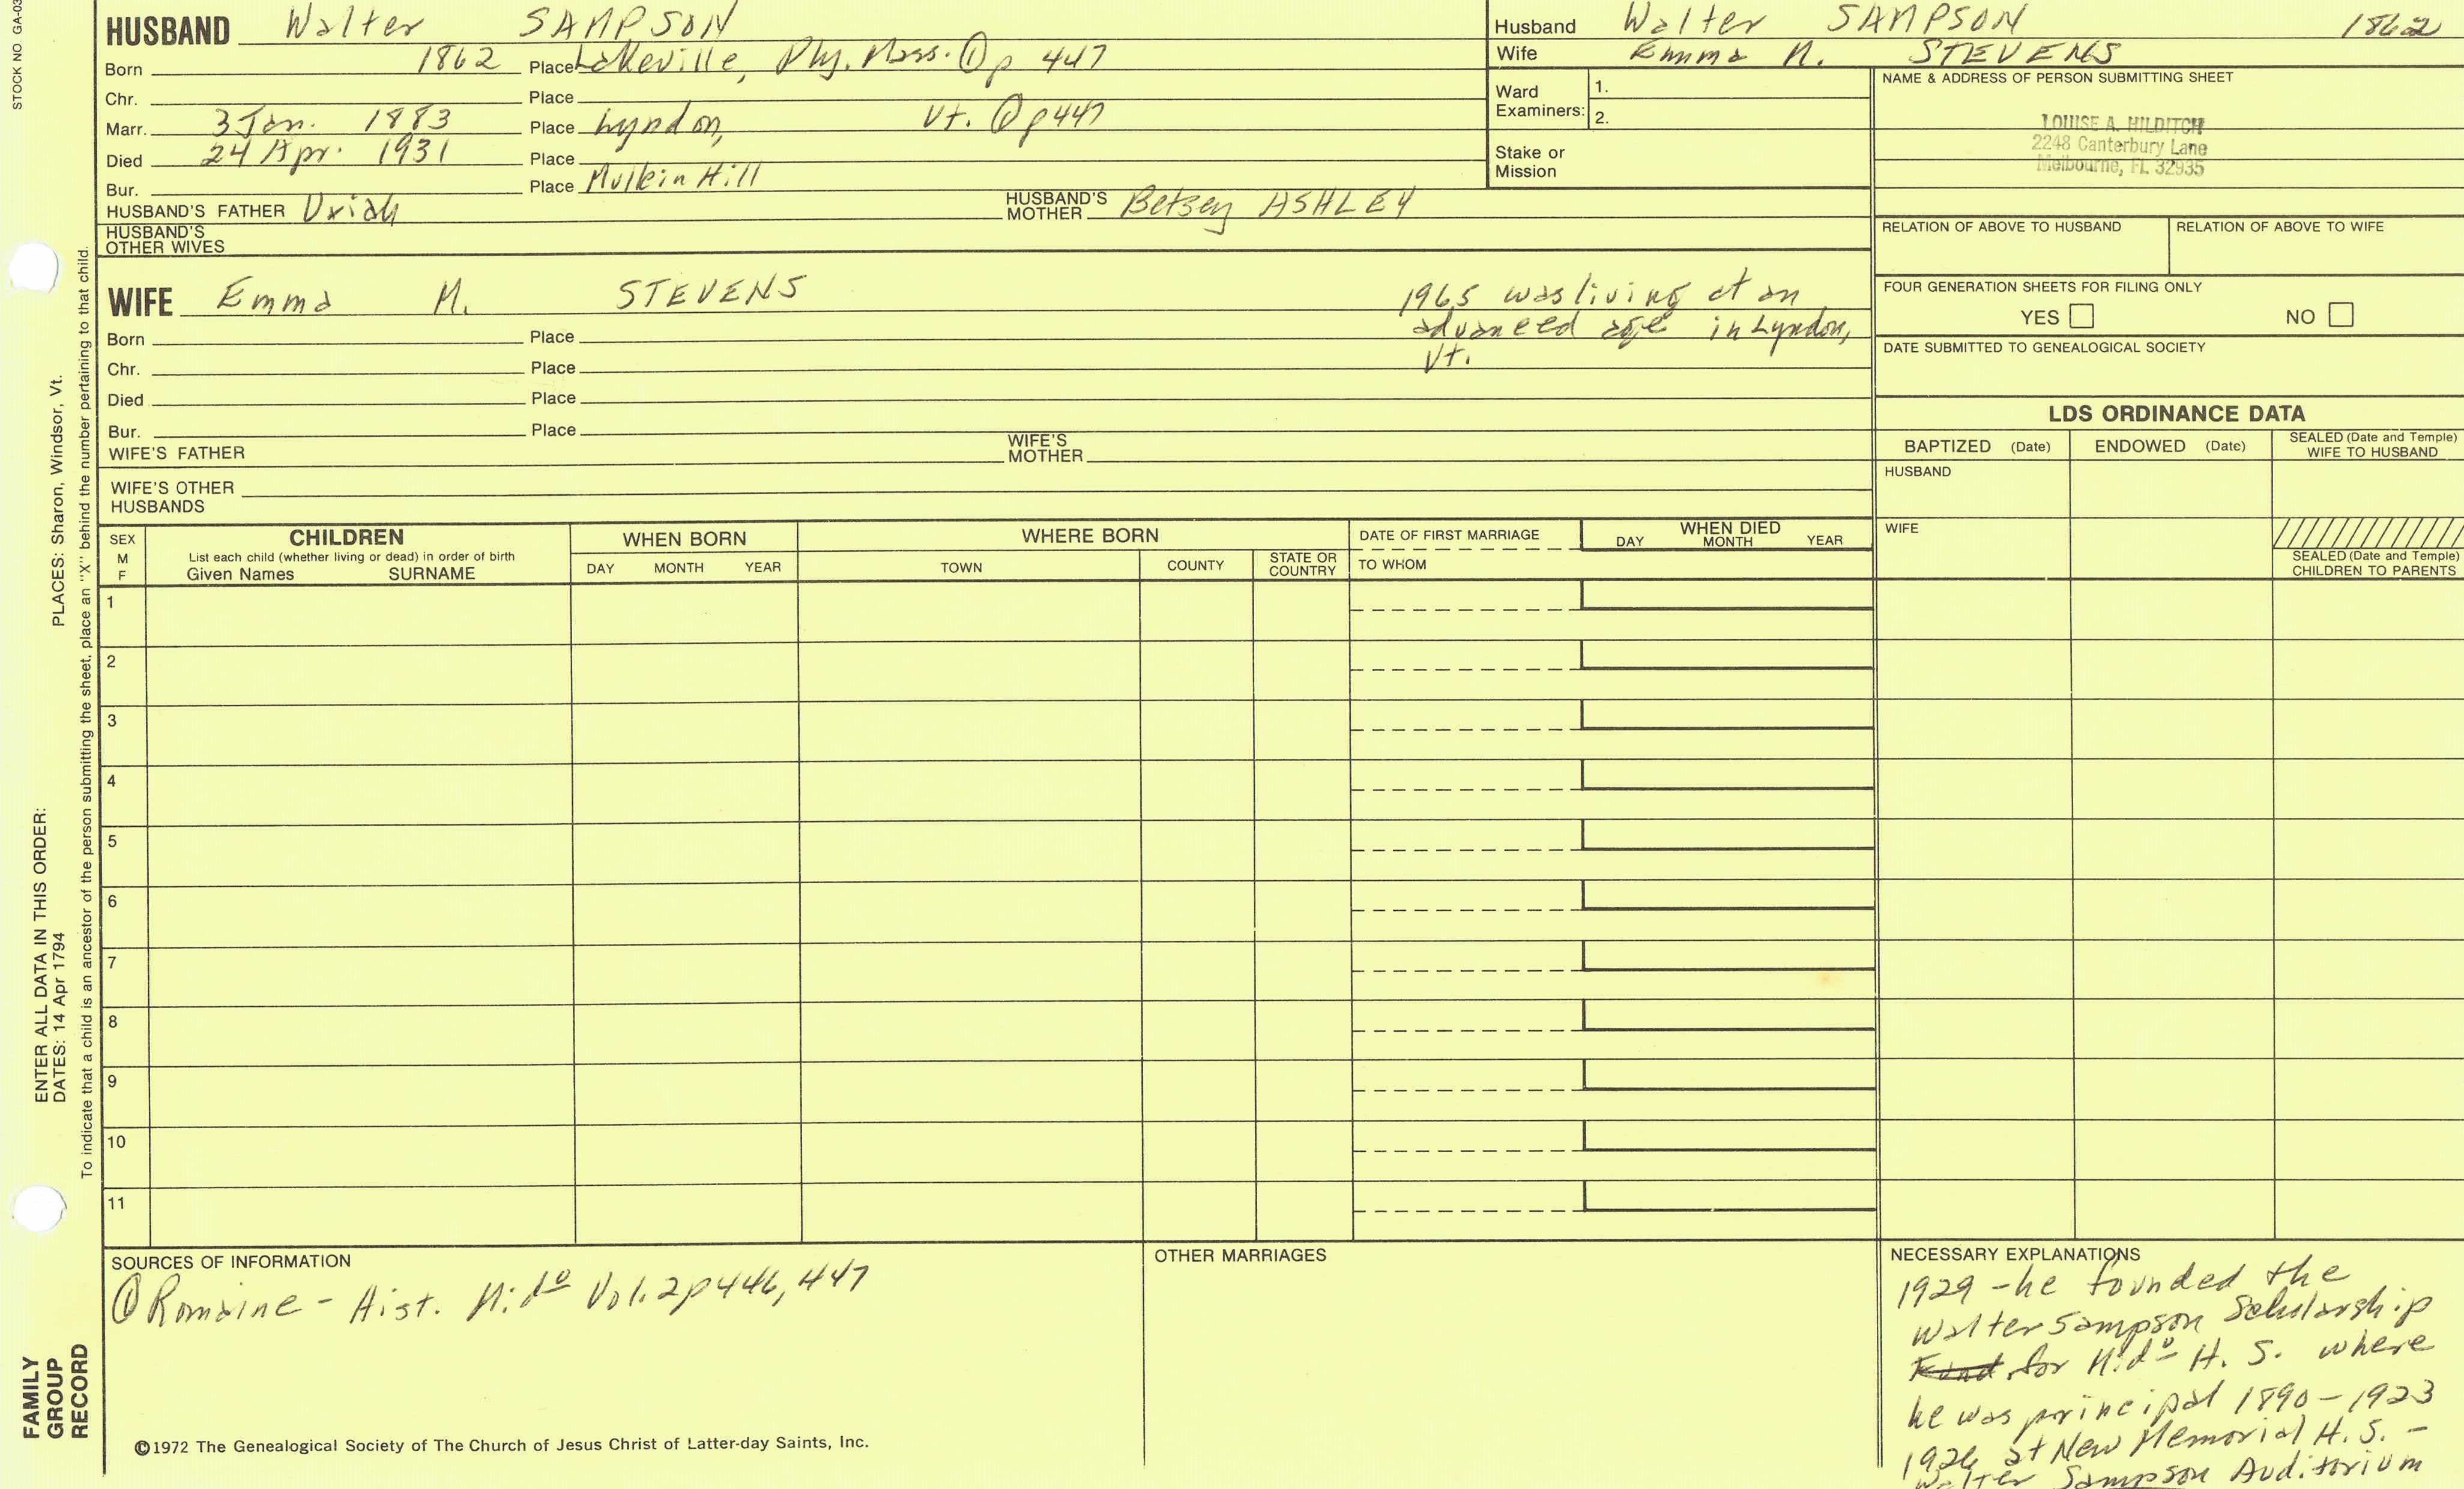 STOCK NO GA-03
HUSBAND Walter SAMPSON
Born 1862 Place Lakeville, Ply. Mass. ① p 447
Chr. Place
Marr. 3 Jan. 1883 Place Lyndon, Vt. ① p 447
Died 24 Apr. 1931 Place
Bur. Place Mullein Hill
HUSBAND'S FATHER Uriah HUSBAND'S MOTHER Betsey ASHLEY
HUSBAND'S OTHER WIVES
Husband Walter SAMPSON 1862
Wife Emma M. STEVENS
Ward Examiners: 1.
2.
Stake or Mission
NAME & ADDRESS OF PERSON SUBMITTING SHEET
LOUISE A. HILDITCH
2248 Canterbury Lane
Melbourne, FL 32935
RELATION OF ABOVE TO HUSBAND RELATION OF ABOVE TO WIFE
FOUR GENERATION SHEETS FOR FILING ONLY
YES NO
DATE SUBMITTED TO GENEALOGICAL SOCIETY
WIFE Emma M. STEVENS
1965 was living at an
advanced age in Lyndon,
Vt.
Born Place
Chr. Place
Died Place
Bur. Place
WIFE'S FATHER WIFE'S MOTHER
WIFE'S OTHER HUSBANDS
LDS ORDINANCE DATA
BAPTIZED (Date) ENDOWED (Date) SEALED (Date and Temple) WIFE TO HUSBAND
HUSBAND
WIFE
SEALED (Date and Temple) CHILDREN TO PARENTS
SEX M F
CHILDREN
List each child (whether living or dead) in order of birth
Given Names SURNAME
WHEN BORN
DAY MONTH YEAR
WHERE BORN
TOWN COUNTY STATE OR COUNTRY
DATE OF FIRST MARRIAGE
TO WHOM
WHEN DIED
DAY MONTH YEAR
1
2
3
4
5
6
7
8
9
10
11
SOURCES OF INFORMATION
① Romaine - Hist. Mido Vol. 2 p 446, 447
OTHER MARRIAGES
NECESSARY EXPLANATIONS
1929 - he founded the
Walter Sampson Scholarship
Fund for Mido H. S. where
he was principal 1890-1923
1926 at New Memorial H. S. -
Walter Sampson Auditorium
©1972 The Genealogical Society of The Church of Jesus Christ of Latter-day Saints, Inc.
FAMILY
GROUP
RECORD
ENTER ALL DATA IN THIS ORDER:
DATES: 14 Apr 1794 PLACES: Sharon, Windsor, Vt.
To indicate that a child is an ancestor of the person submitting the sheet, place an "X" behind the number pertaining to that child.